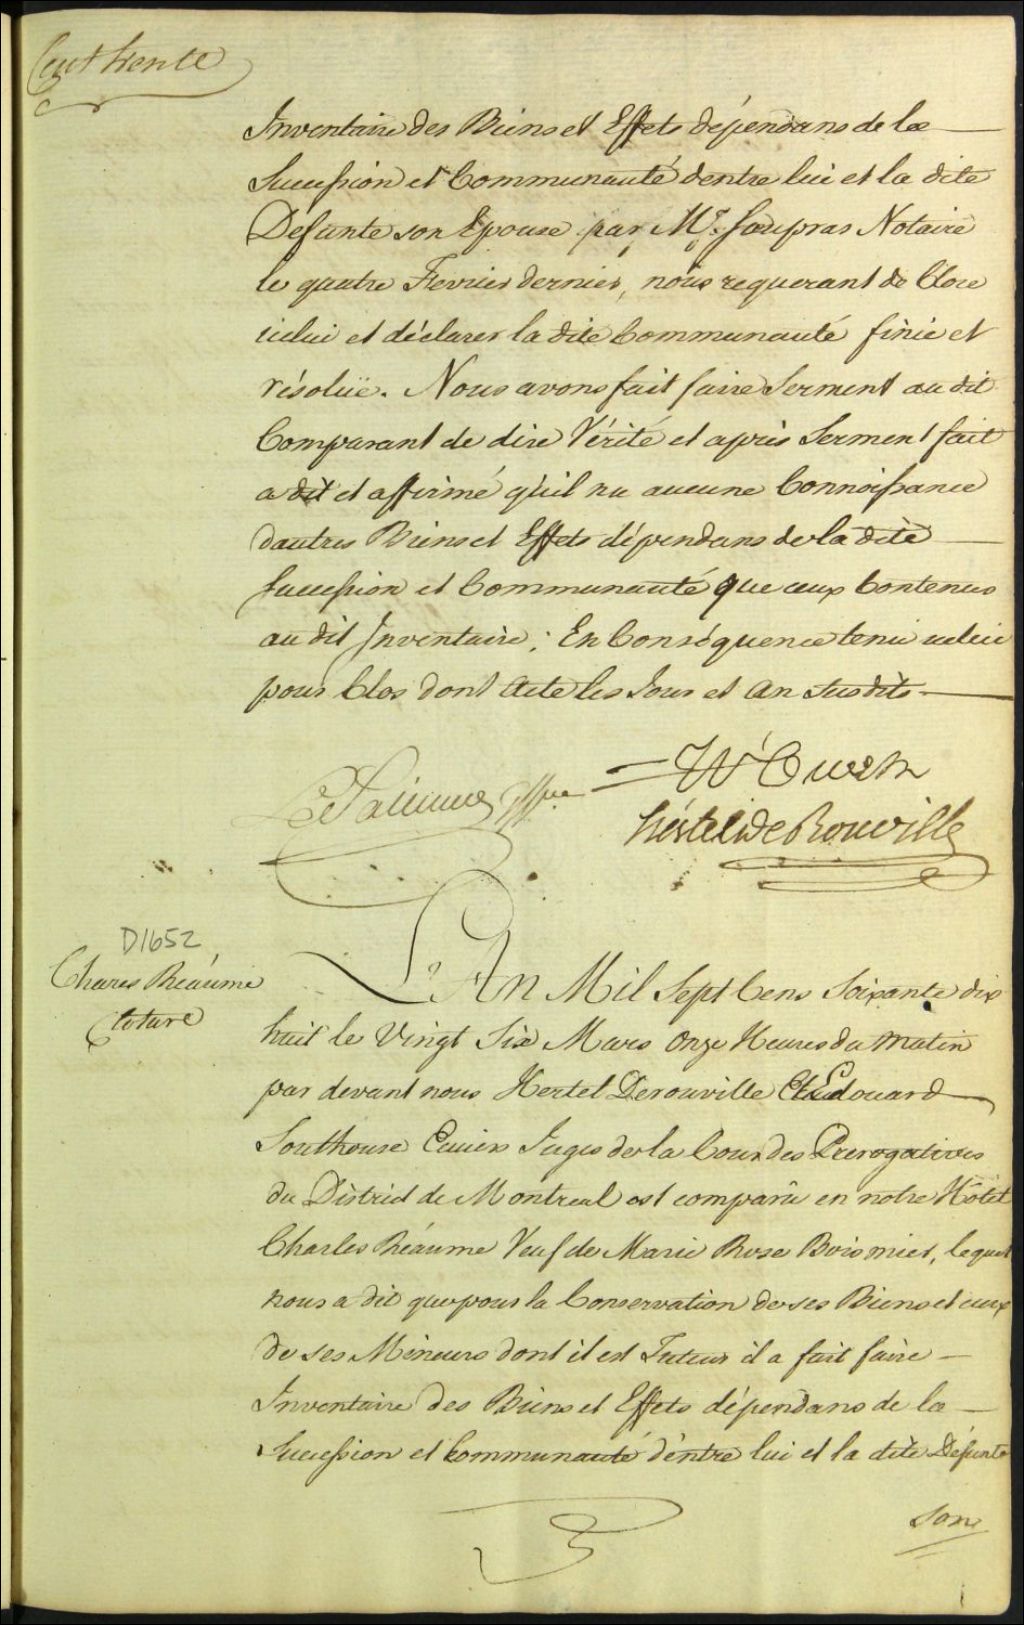 Cent trente
Inventaire des Biens et Effets dépendans de la
Succession et Communauté dentre lui et la dite
Defunte son Epouse par Mr. Foupras Notaire
le quatre Fevrier dernier, nous requerant de Clore
icelui et déclarer la dite Communauté finie et
résolüe. Nous avons fait faire Serment au dit
Comparant de dire Vérité et après Serment fait
a dit et affirmé qu'il n'a aucune Connoissance
dautres Biens et Effets dépendans de la dite
Succession et Communauté que ceux Contenus
au dit Inventaire; En Conséquence tenu icelui
pour Clos dont Acte les Jour et An Susdits
Hertel de Rouville
D1652
Chares Réaume
Cloture
L'An Mil Sept Cens Soixante dix
huit le Vingt Six Mars Onze Heures du Matin
par devant nous Hertel Derouville Et Edouard
Southouse Ecuiers Juges de la Cour des Prerogatives
du District de Montreal est comparu en notre Hôtel
Charles Réaume Veuf de Marie Rose Boismier, lequel
nous a dit que pour la Conservation de ses Biens et ceux
de ses Mineurs dont il est Tuteur il a fait faire
Inventaire des Biens et Effets dépendans de la
Succession et Communauté d'entre lui et la dite Défunte
son